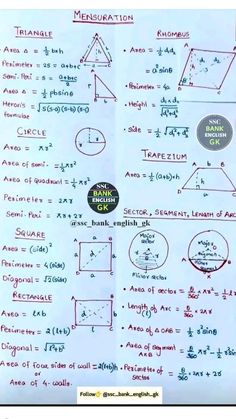 MENSURATION
TRIANGLE
Area Δ = 1/2 b×h
Perimeter = 2S = a+b+c
Semi-Peri = S = (a+b+c)/2
Area Δ = 1/2 pbsinθ
Heron's formulae √(s(s-a)(s-b)(s-c))
CIRCLE
Area = πr²
Area of semi- = 1/2 πr²
Area of quadrant = 1/4 πr²
Perimeter = 2πr
Semi-Peri = πr + 2r
@ssc_bank_english_gk
SQUARE
Area = (side)²
Perimeter = 4(side)
Diagonal = √2(side)
a
a
a
a
RECTANGLE
Area = l×b
Perimeter = 2(l+b)
Diagonal = √(l²+b²)
Area of four sides of wall = 2(l+b)h
or
Area of 4-walls.
RHOMBUS
Area = 1/2 d₁d₂
= a²sinθ
Perimeter = 4a
Height =
side = 1/2 √(d₁²+d₂²)
SSC
BANK
ENGLISH
GK
TRAPEZIUM
Area = 1/2 (a+b)×h
SSC
BANK
ENGLISH
GK
SECTOR, SEGMENT, LENGTH OF ARC
Major sector
Minor sector
Area of sector = θ/360 × πr² = 1/2 lr
Length of Arc = θ/360 × 2πr
(l)
Area of Δ OAB = 1/2 r²sinθ
Area of segment = θ/360 πr² - 1/2 r²sinθ
Perimeter of sector = θ/360 2πr + 2r
Follow @ssc_bank_english_gk